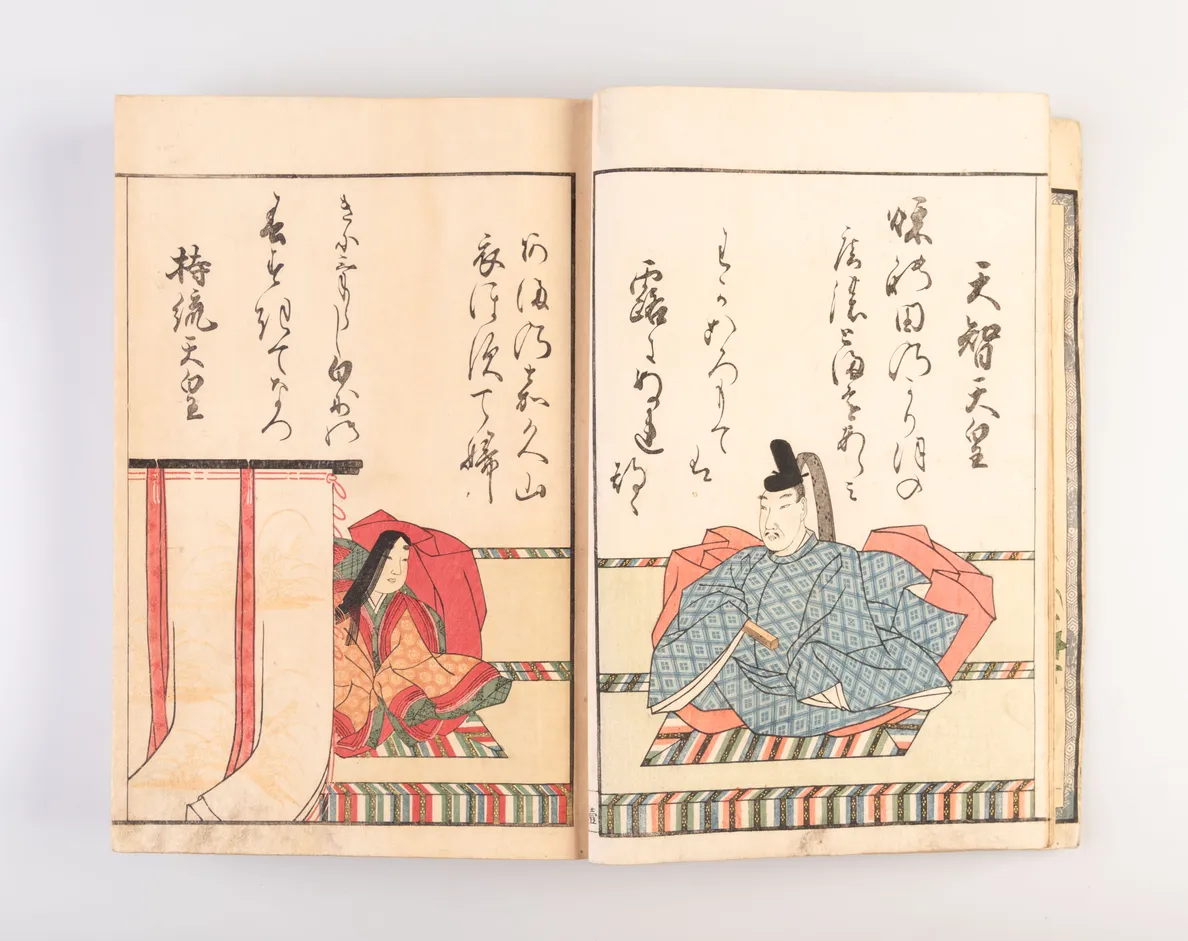 天智天皇
秋の田のかりほの
庵のとまをあらみ
わかころもて
は
露にぬれ
つゝ
持統天皇
春すきてなつ
きにけらし白妙の
衣ほすてふ
あまのかく山